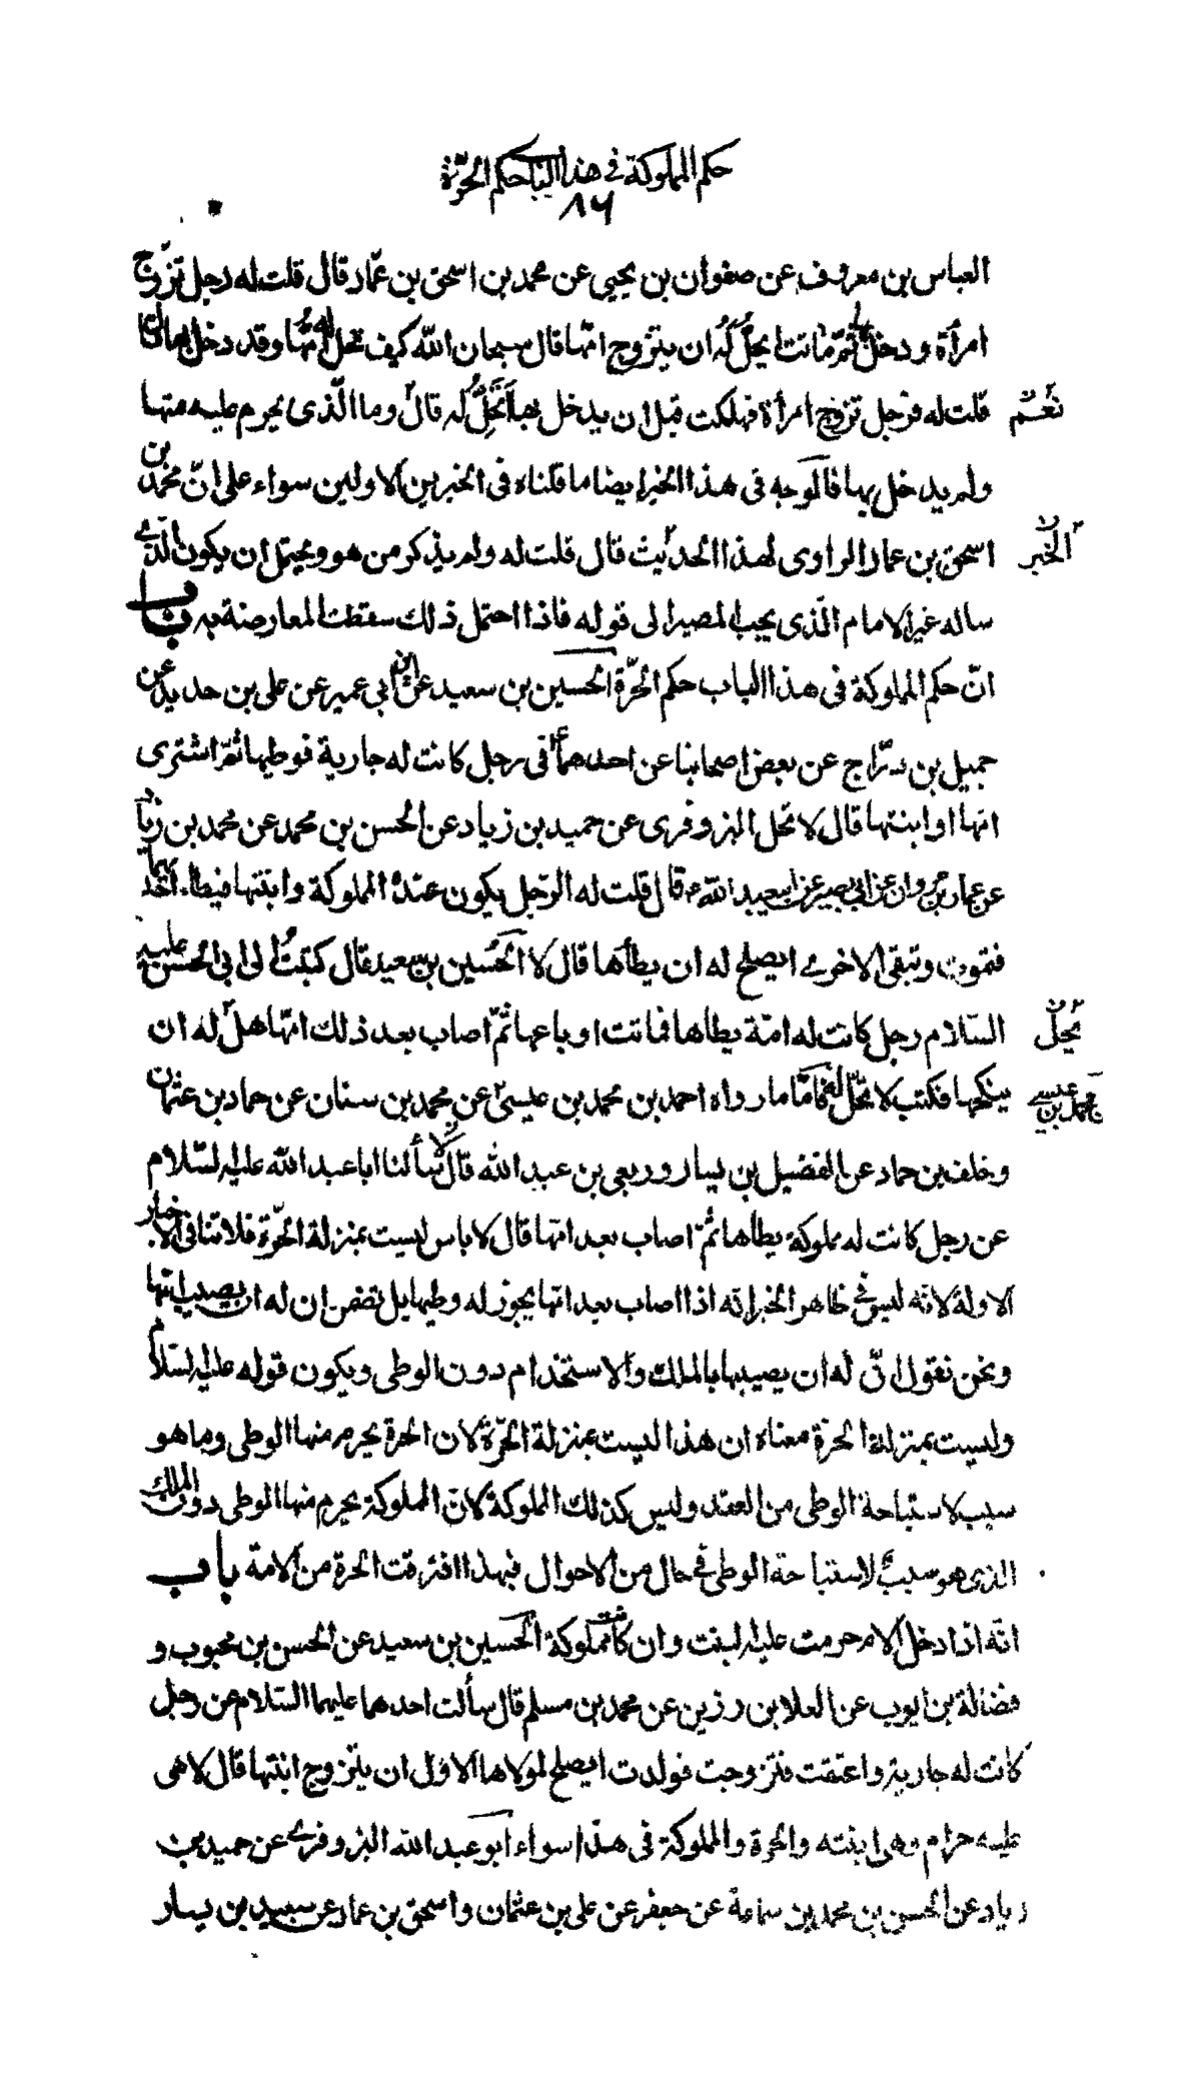 حكم المملوكة فى هذا الباب حكم الحرّة
٨٦
العباس بن معروف عن صفوان بن يحيى عن محمد بن اسحق بن عمّار قال قلت له رجل تزوّج
امرأة ودخل بها ثمّ ماتت ايحلّ له ان يتزوج امّها قال سبحان اللّه كيف تحل له امّها وقد دخل بها قال
قلت له فرجل تزوج امرأة فهلكت قبل ان يدخل بها تحلّ له امّها قال وما الّذى يحرم عليه منها
نعم
ولم يدخل بها فالوجه فى هذا الخبر ايضا ما قلناه فى الخبرين الاولين سواء على انّ محمد بن
اسحق بن عمار الراوى لهذا الحديث قال قلت له ولم يذكر من هو ويحتمل ان يكون الّذى
الخبر
ساله غير الامام الّذى يجب المصير الى قوله فاذا احتمل ذلك سقطت المعارضة به باب
انّ حكم المملوكة فى هذا الباب حكم الحرّة الحسين بن سعيد عن ابن ابى عمير عن على بن حديد عن
جميل بن درّاج عن بعض اصحابنا عن احدهما فى رجل كانت له جارية فوطيها ثمّ اشترى
امّها او ابنتها قال لا تحل البزوفرى عن حميد بن زياد عن الحسن بن محمد عن محمد بن زياد
عن عمار بن مروان عن ابى بصير عن ابيعبد اللّه ع قال قلت له الرّجل يكون عنده المملوكة وابنتها فيطاء احديهما
فتموت وتبقى الاخرى ايصلح له ان يطأها قال لا الحسين بن سعيد قال كتبت الى ابى الحسن عليه
السّلام رجل كانت له امة يطاها فماتت او باعها ثمّ اصاب بعد ذلك امّها هل له ان
يحلّ
ينكحها فكتب لا تحلّ له فامّا ما رواه احمد بن محمد بن عيسى عن محمد بن سنان عن حماد بن عثمان
محمد بن عيسى
وخلف بن حماد عن الفضيل بن يسار وربعى بن عبد الله قال سألنا ابا عبد اللّه عليه السّلام
عن رجل كانت له مملوكة يطاها ثمّ اصاب بعد امّها قال لا باس ليست بمنزلة الحرّة فلا تنافى الاخبار
الاولة لانّه ليس فى ظاهر الخبر انّه اذا اصاب بعد امّها يجوز له وطيها بل تضمن ان له ان يصيب امّها
ونحن نقول انّ له ان يصيبها بالملك والاستخدام دون الوطى ويكون قوله عليه السّلام
وليست بمنزلة الحرّة معناه ان هذا ليست بمنزلة الحرّة لان الحرة يحرم منها الوطى وما هو
سبب لاستباحة الوطى من العقد وليس كذلك المملوكة لانّ المملوكة يحرم منها الوطى دون الملك
الذى هو سبب لاستباحة الوطى فى حال من الاحوال فبهذا افترقت الحرة من الامة باب
انّه اذا دخل بالام حرمت عليه البنت وان كانت مملوكة الحسين بن سعيد عن الحسن بن محبوب و
فضالة بن ايوب عن العلا بن رزين عن محمد بن مسلم قال سألت احدهما عليهما السّلام عن رجل
كانت له جارية واعتقت فتزوجت فولدت ايصلح لمولاها الاوّل ان يتزوج ابنتها قال لا هى
عليه حرام وهى ابنته والحرة والمملوكة فى هذا سواء ابو عبد اللّه البزوفرى عن حميد بن
زياد عن الحسن بن محمد بن سماعة عن جعفر عن على بن عثمان واسحق بن عمار عن سعيد بن يسار